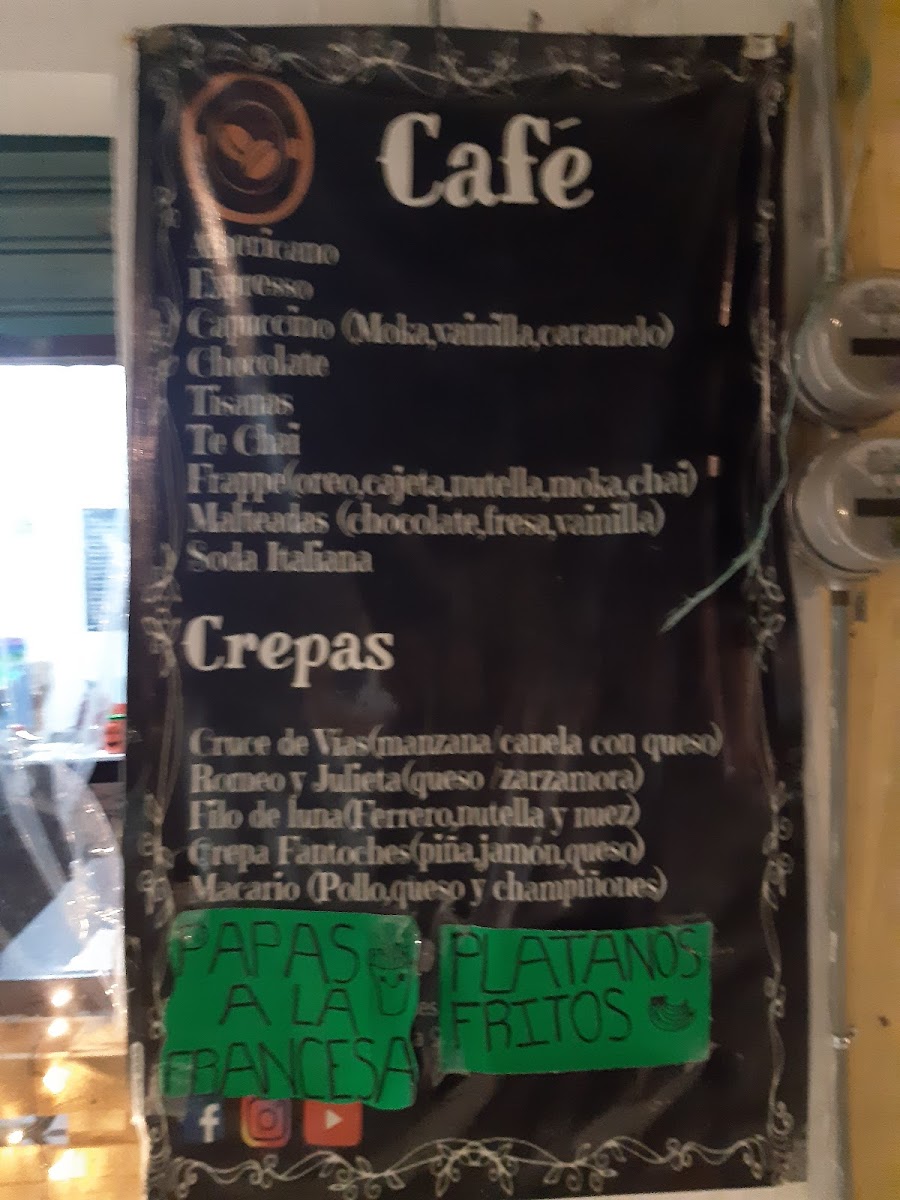 Café
Americano
Expresso
Capuccino (Moka,vainilla,caramelo)
Chocolate
Tisanas
Te Chai
Frappe(oreo,cajeta,nutella,moka,chai)
Malteadas (chocolate,fresa,vainilla)
Soda Italiana
Crepas
Cruce de Vias(manzana/canela con queso)
Romeo y Julieta(queso /zarzamora)
Filo de luna(Ferrero,nutella y nuez)
Crepa Fantoches(piña,jamón,queso)
Macario (Pollo,queso y champiñones)
PAPAS
A LA
FRANCESA
PLATANOS
FRITOS